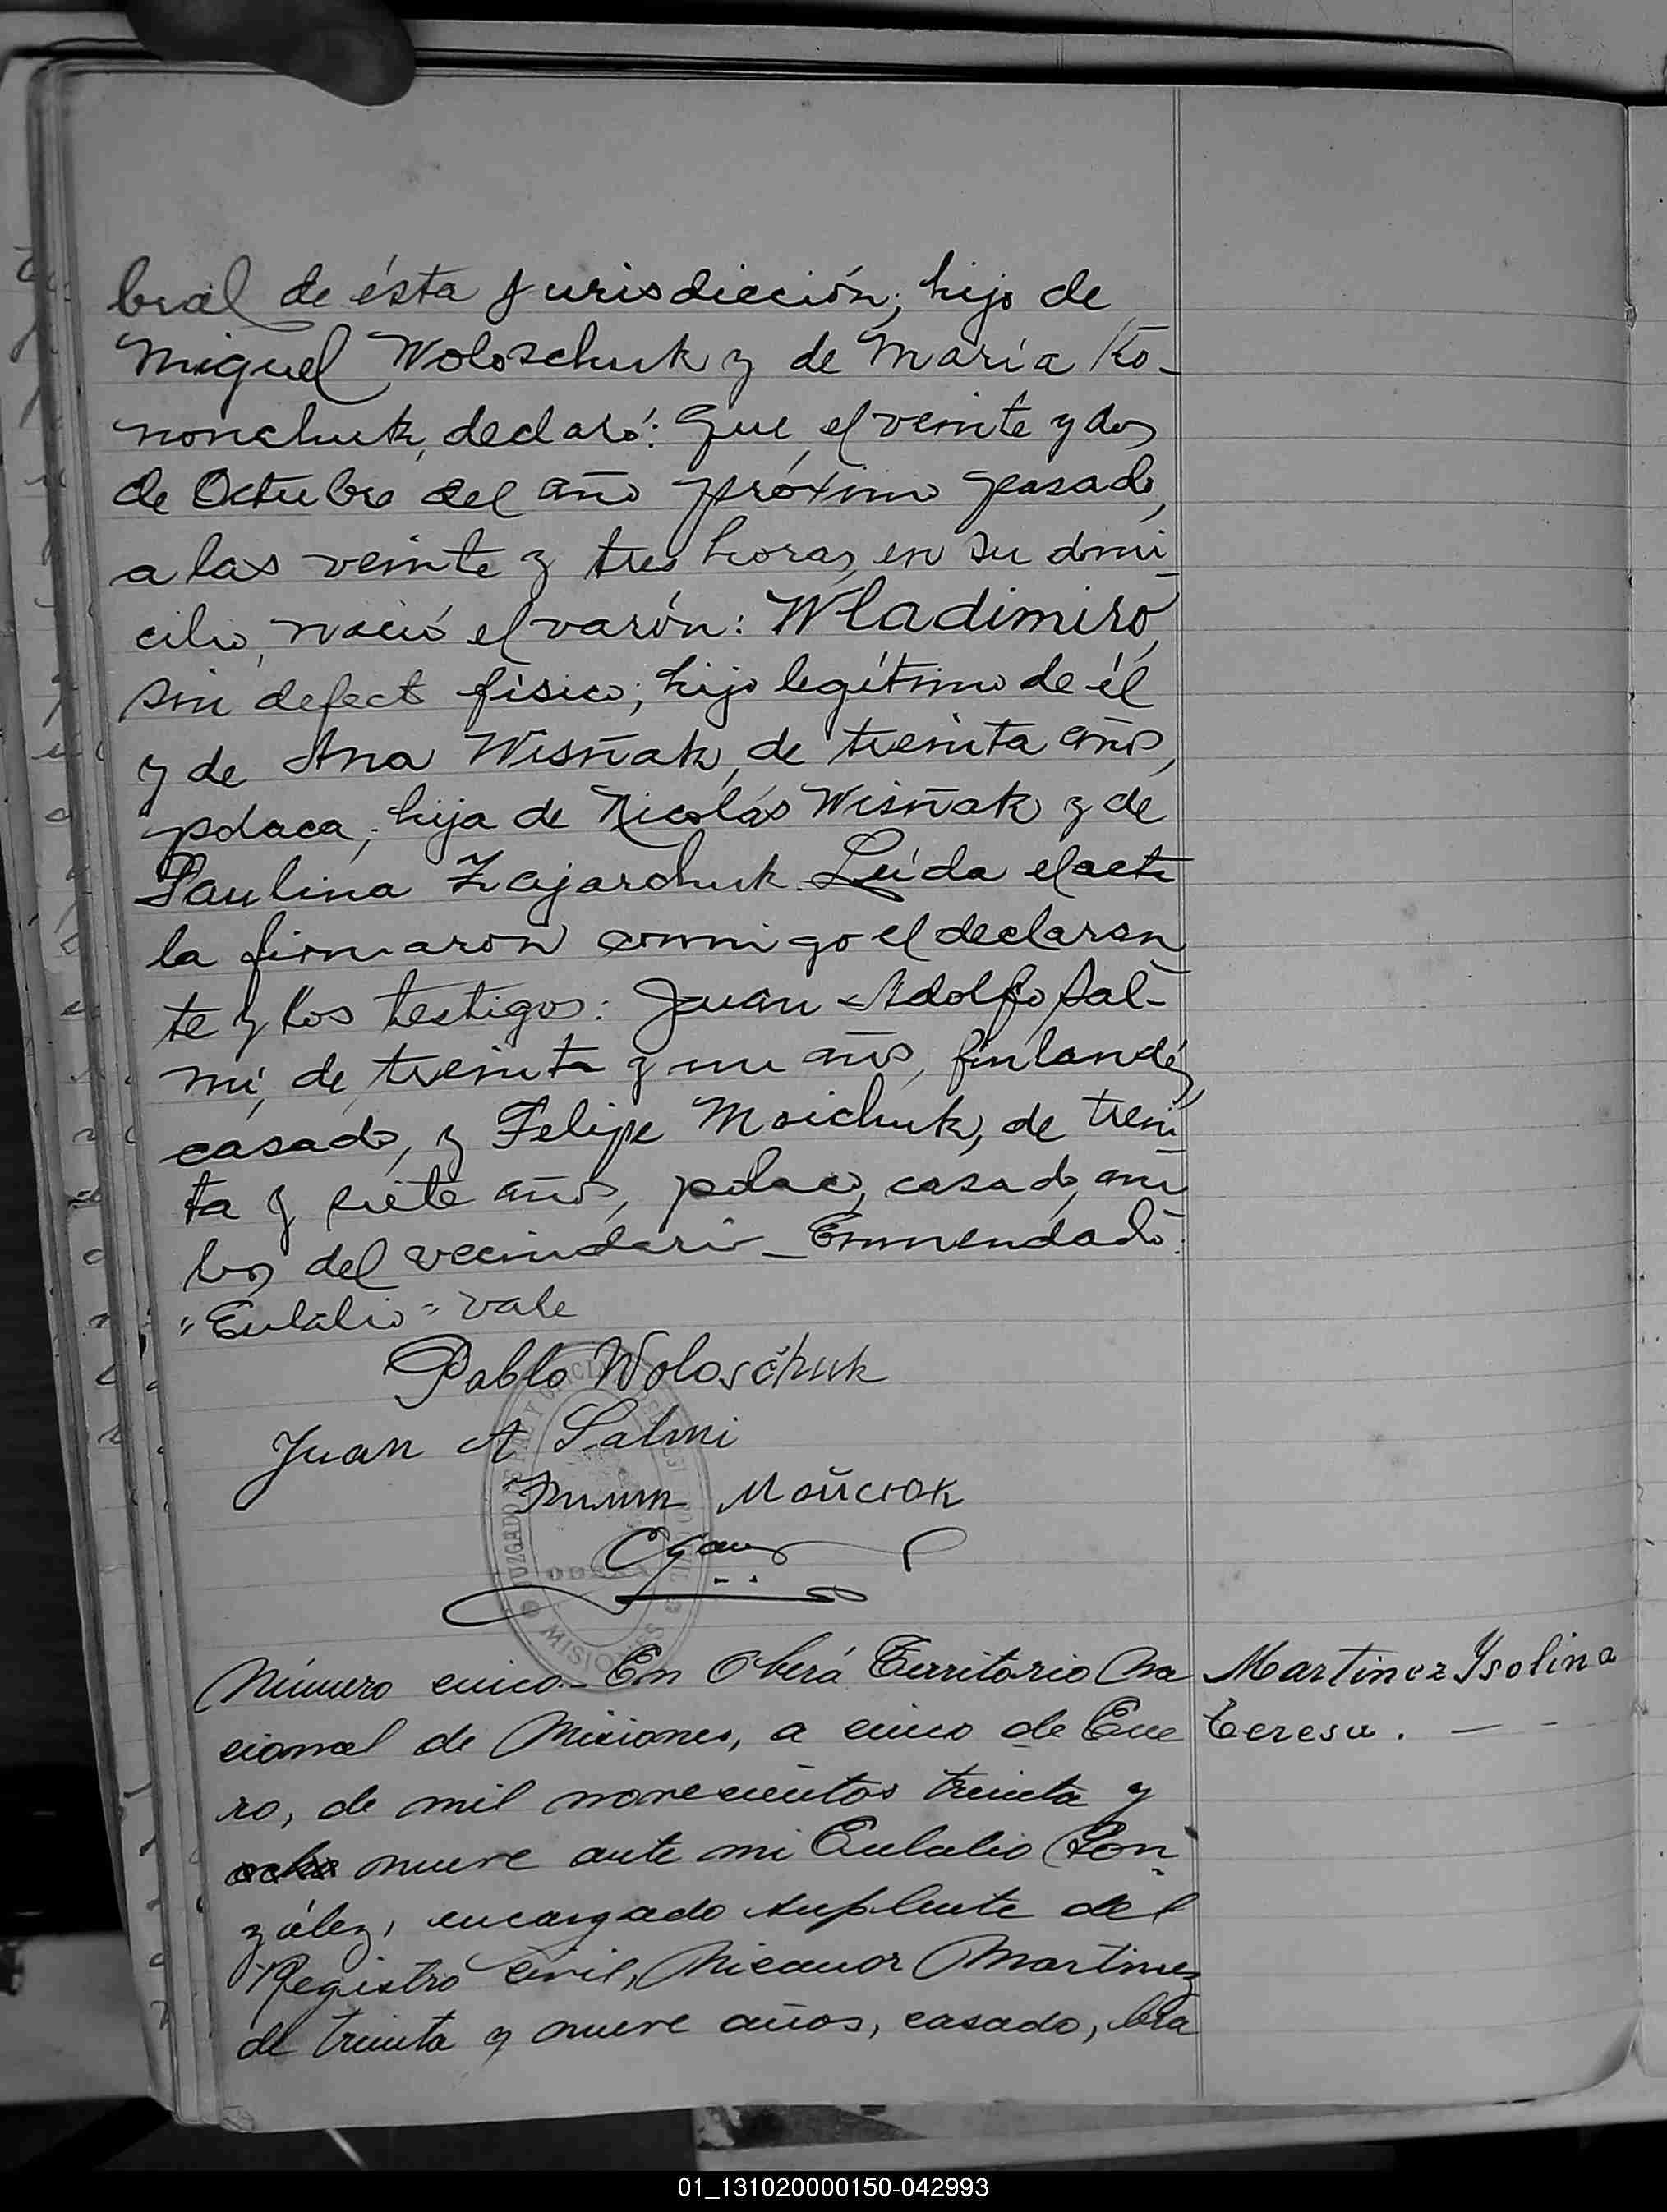 bral de ésta Jurisdicción; hijo de
Miguel Woloschuk y de María Ko-
nonchuk, declaró: Que, el veinte y dos
de Octubre del año próximo pasado,
a las veinte y tres horas, en su domi-
cilio, nació el varón: Wladimiro,
sin defecto físico; hijo legítimo de él
y de Ana Wisñak, de treinta años,
polaca; hija de Nicolás Wisñak y de
Paulina Zajarchuk. Leída el acta
la firmaron conmigo el declaran-
te y los testigos: Juan Adolfo Sal-
mi, de treinta y un años, finlandés,
casado, y Felipe Moichuk, de trein-
ta y siete años, polaco, casado, am-
bos del vecindario - Enmendado:
"Eulalio" vale
Pablo Woloschuk
Juan A Salmi
Мойсюк
JUZGADO DE PAZ Y
MISIONES
Número cinco.- En Oberá Territorio Na
cional de Misiones, a cinco de Ene
ro, de mil novecientos treinta y
ocho nueve ante mi Eulalio Gon-
zález, encargado suplente del
Registro Civil, Nicanor Martinez
de treinta y nueve años, casado, bra
Martinez Ysolina
Teresa. — -
01_131020000150-042993